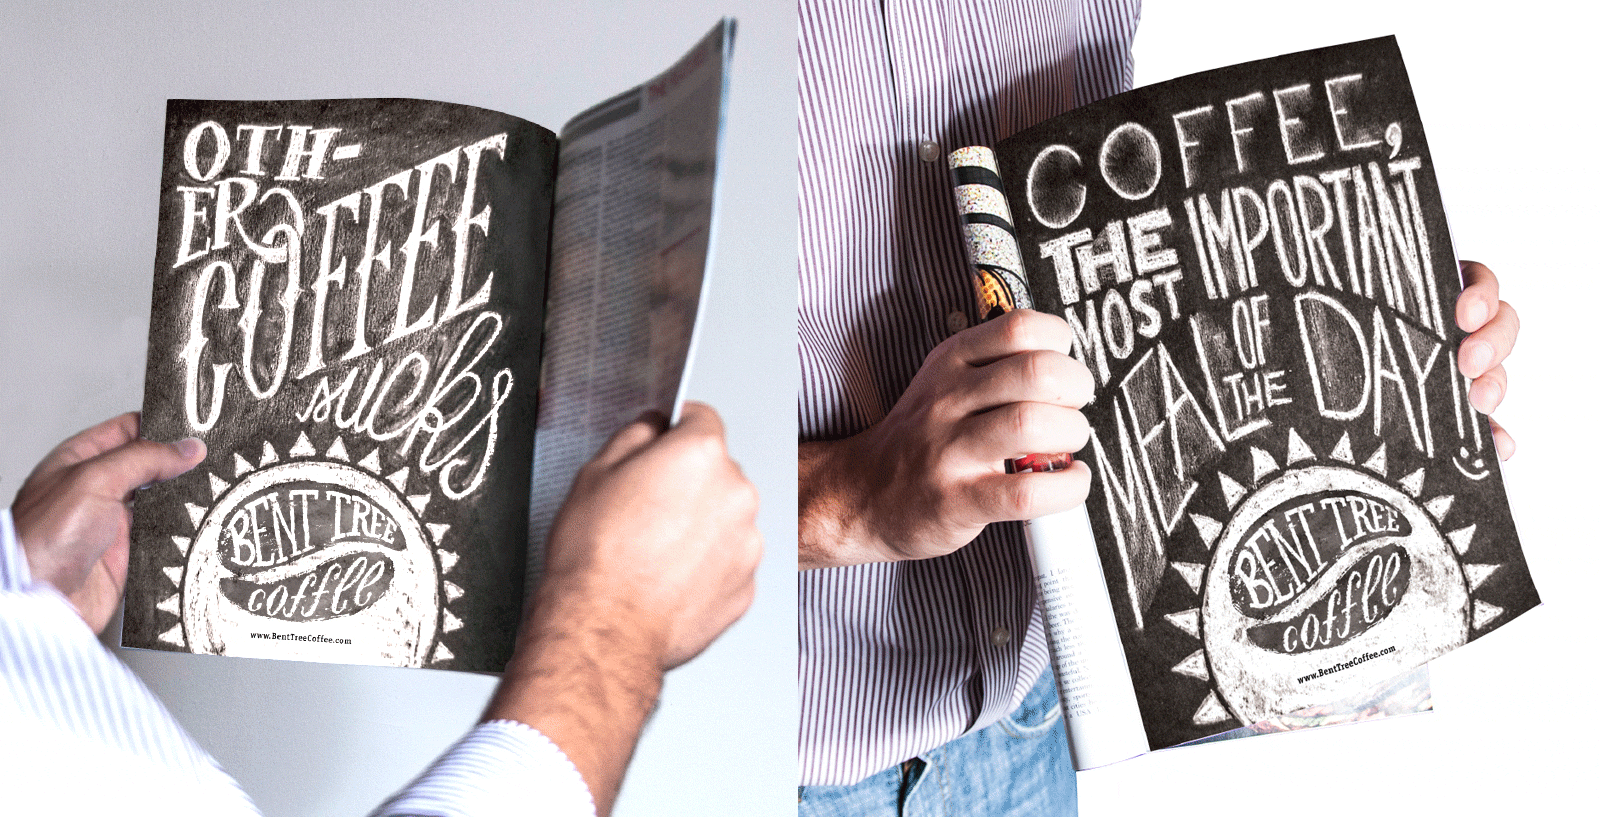 OTH-
ER
COFFEE
sucks
BENT TREE
coffee
www.BentTreeCoffee.com
COFFEE,
THE
MOST
IMPORTANT
MEAL
OF
THE
DAY!!
BENT TREE
coffee
www.BentTreeCoffee.com